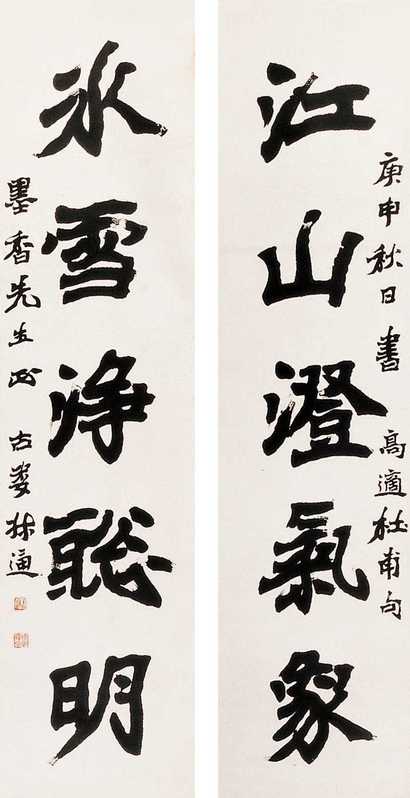 江山澄氣象
庚申秋日書 高適杜甫句
冰雪淨聰明
墨香先生正 古婁林逋